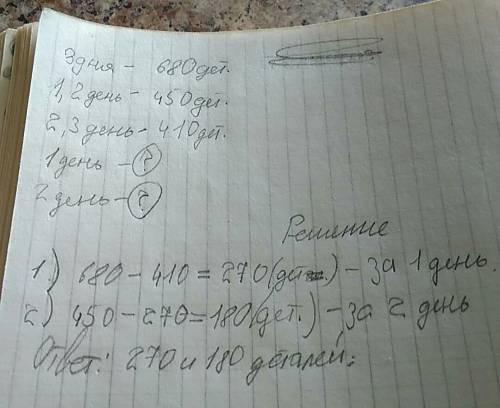 3 дня - 680 дет.
1,2 день - 450 дет.
2,3 день - 410 дет.
1 день - ?
2 день - ?
Решение
1) 680 - 410 = 270 (дет.) - за 1 день.
2) 450 - 270 = 180 (дет.) - за 2 день
Ответ: 270 и 180 деталей.